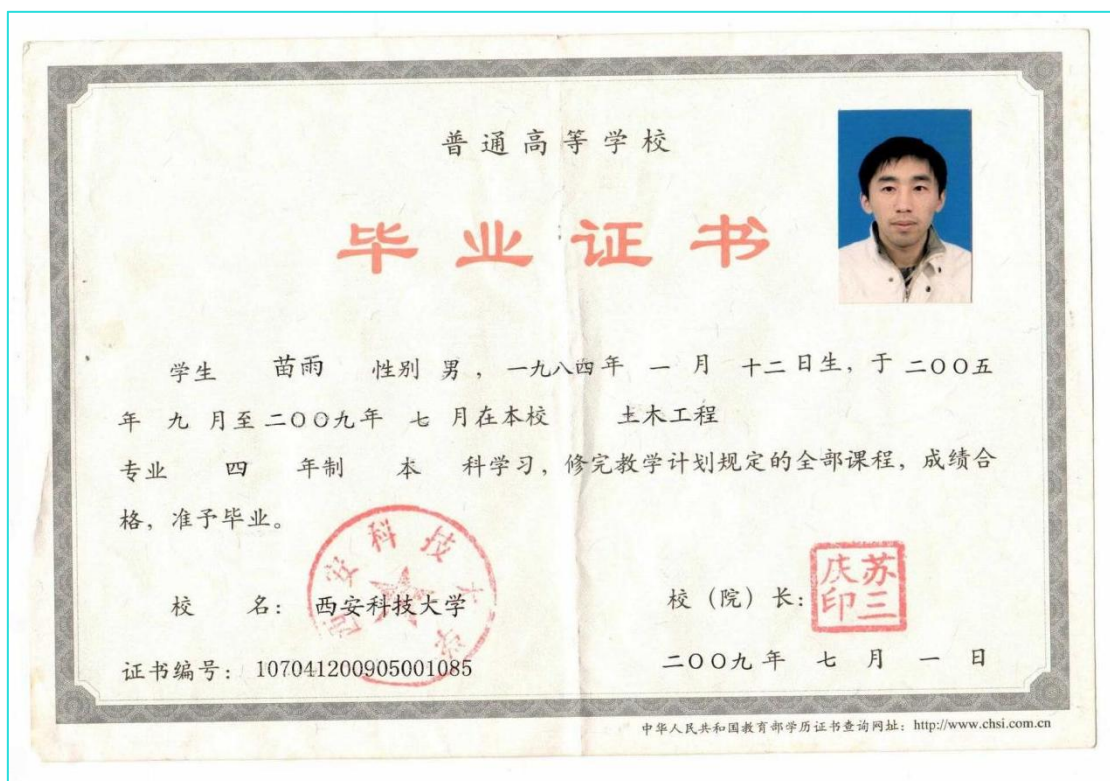 普通高等学校
毕业证书
学生 苗雨 性别 男，一九八四年 一 月 十二日生，于二〇〇五
年 九 月至二〇〇九年 七 月在本校 土木工程
专业 四 年制 本 科学习，修完教学计划规定的全部课程，成绩合
格，准予毕业。
西安科技大学
校 名： 西安科技大学
校（院）长：
苏三庆印
证书编号： 107041200905001085
二〇〇九年 七 月 一 日
中华人民共和国教育部学历证书查询网址：http://www.chsi.com.cn